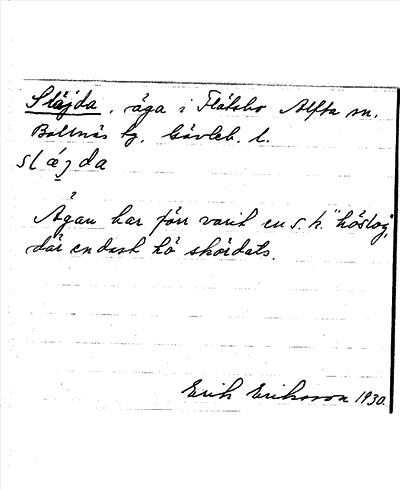 Släjda, äga i Flätsbo Alfta sn.
Bollnäs tg. Gävleb. l.
släjda
Ägan har förr varit en s. k. "höslog",
där endast hö skördats.
Erik Eriksson 1930.